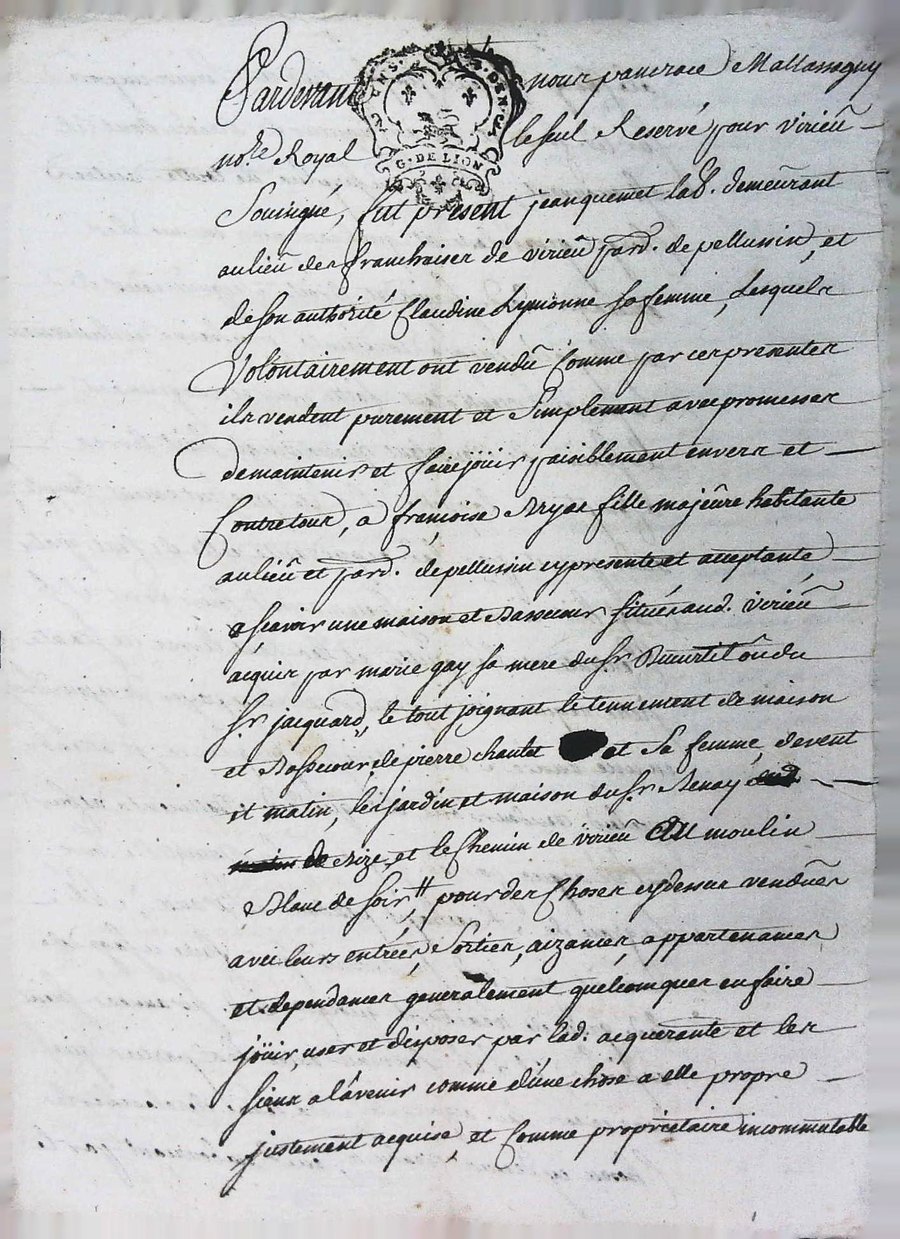 Pardevant nous pancrace Mallassaguy
G. DE LION
no.re Royal le seul Reservé pour virieû
Soussigné, fut présent jean quemet lab.r demeûrant
au lieû des franchises de virieû parr. de pellussin, et
de son authorité Claudine Lymonne sa femme, Lesquels
Volontairement ont vendû Comme par ces presentes
ils vendent purement et Simplement avec promesses
de maintenir et faire joüir paisiblement envers et
Contre tous, a françoise fille majeûre habitante
au lieû et parr. de pellussin cy presente et acceptante
a sçavoir une maison et Bassecour situés aud. virieû
acquis par marie gay sa mere du sr. ou du
sr. jacquard, le tout joignant le tennement de maison
et Bassecour de pierre chautet et Sa femme, de vent
et matin, les jardin et maison du sr. Benay
de Bize, et le Chemin de virieû au moulin
Blanc de soir, pour des Choses cy dessus vendûes
avec leurs entrées, Sorties, aizances, appartenances
et dependances generalement quelconques en faire
joüir, user et disposer par lad. acquerante et les
siens a l'avenir comme d'une chose a elle propre
justement acquise, et Comme proprietaire incommutable